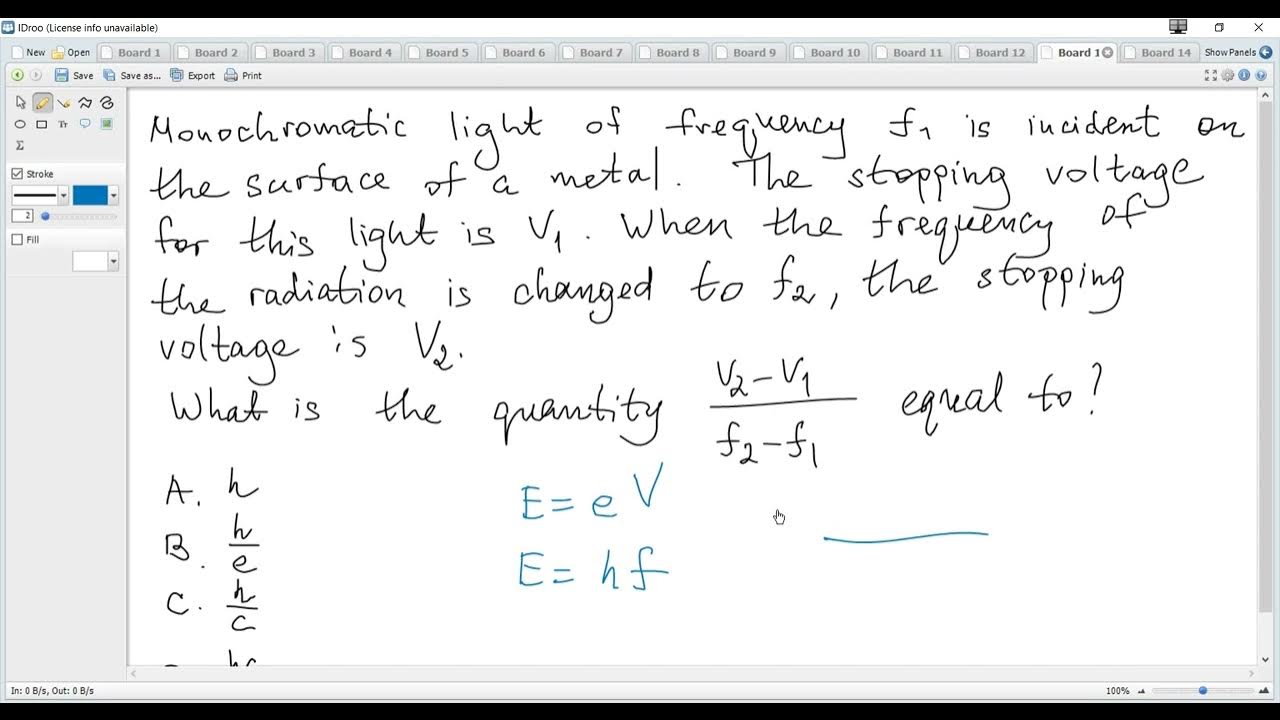 IDroo (License info unavailable)
New Open Board 1 Board 2 Board 3 Board 4 Board 5 Board 6 Board 7 Board 8 Board 9 Board 10 Board 11 Board 12 Board 1 Board 14 Show Panels
Save Save as... Export Print
Tr
Σ
Stroke
2
Fill
Monochromatic light of frequency f₁ is incident on
the surface of a metal. The stopping voltage
for this light is V₁. When the frequency of
the radiation is changed to f₂, the stopping
voltage is V₂.
What is the quantity (V₂-V₁)/(f₂-f₁) equal to?
A. h
B. h/e
C. h/c
E = eV
E = hf
In: 0 B/s, Out: 0 B/s
100%